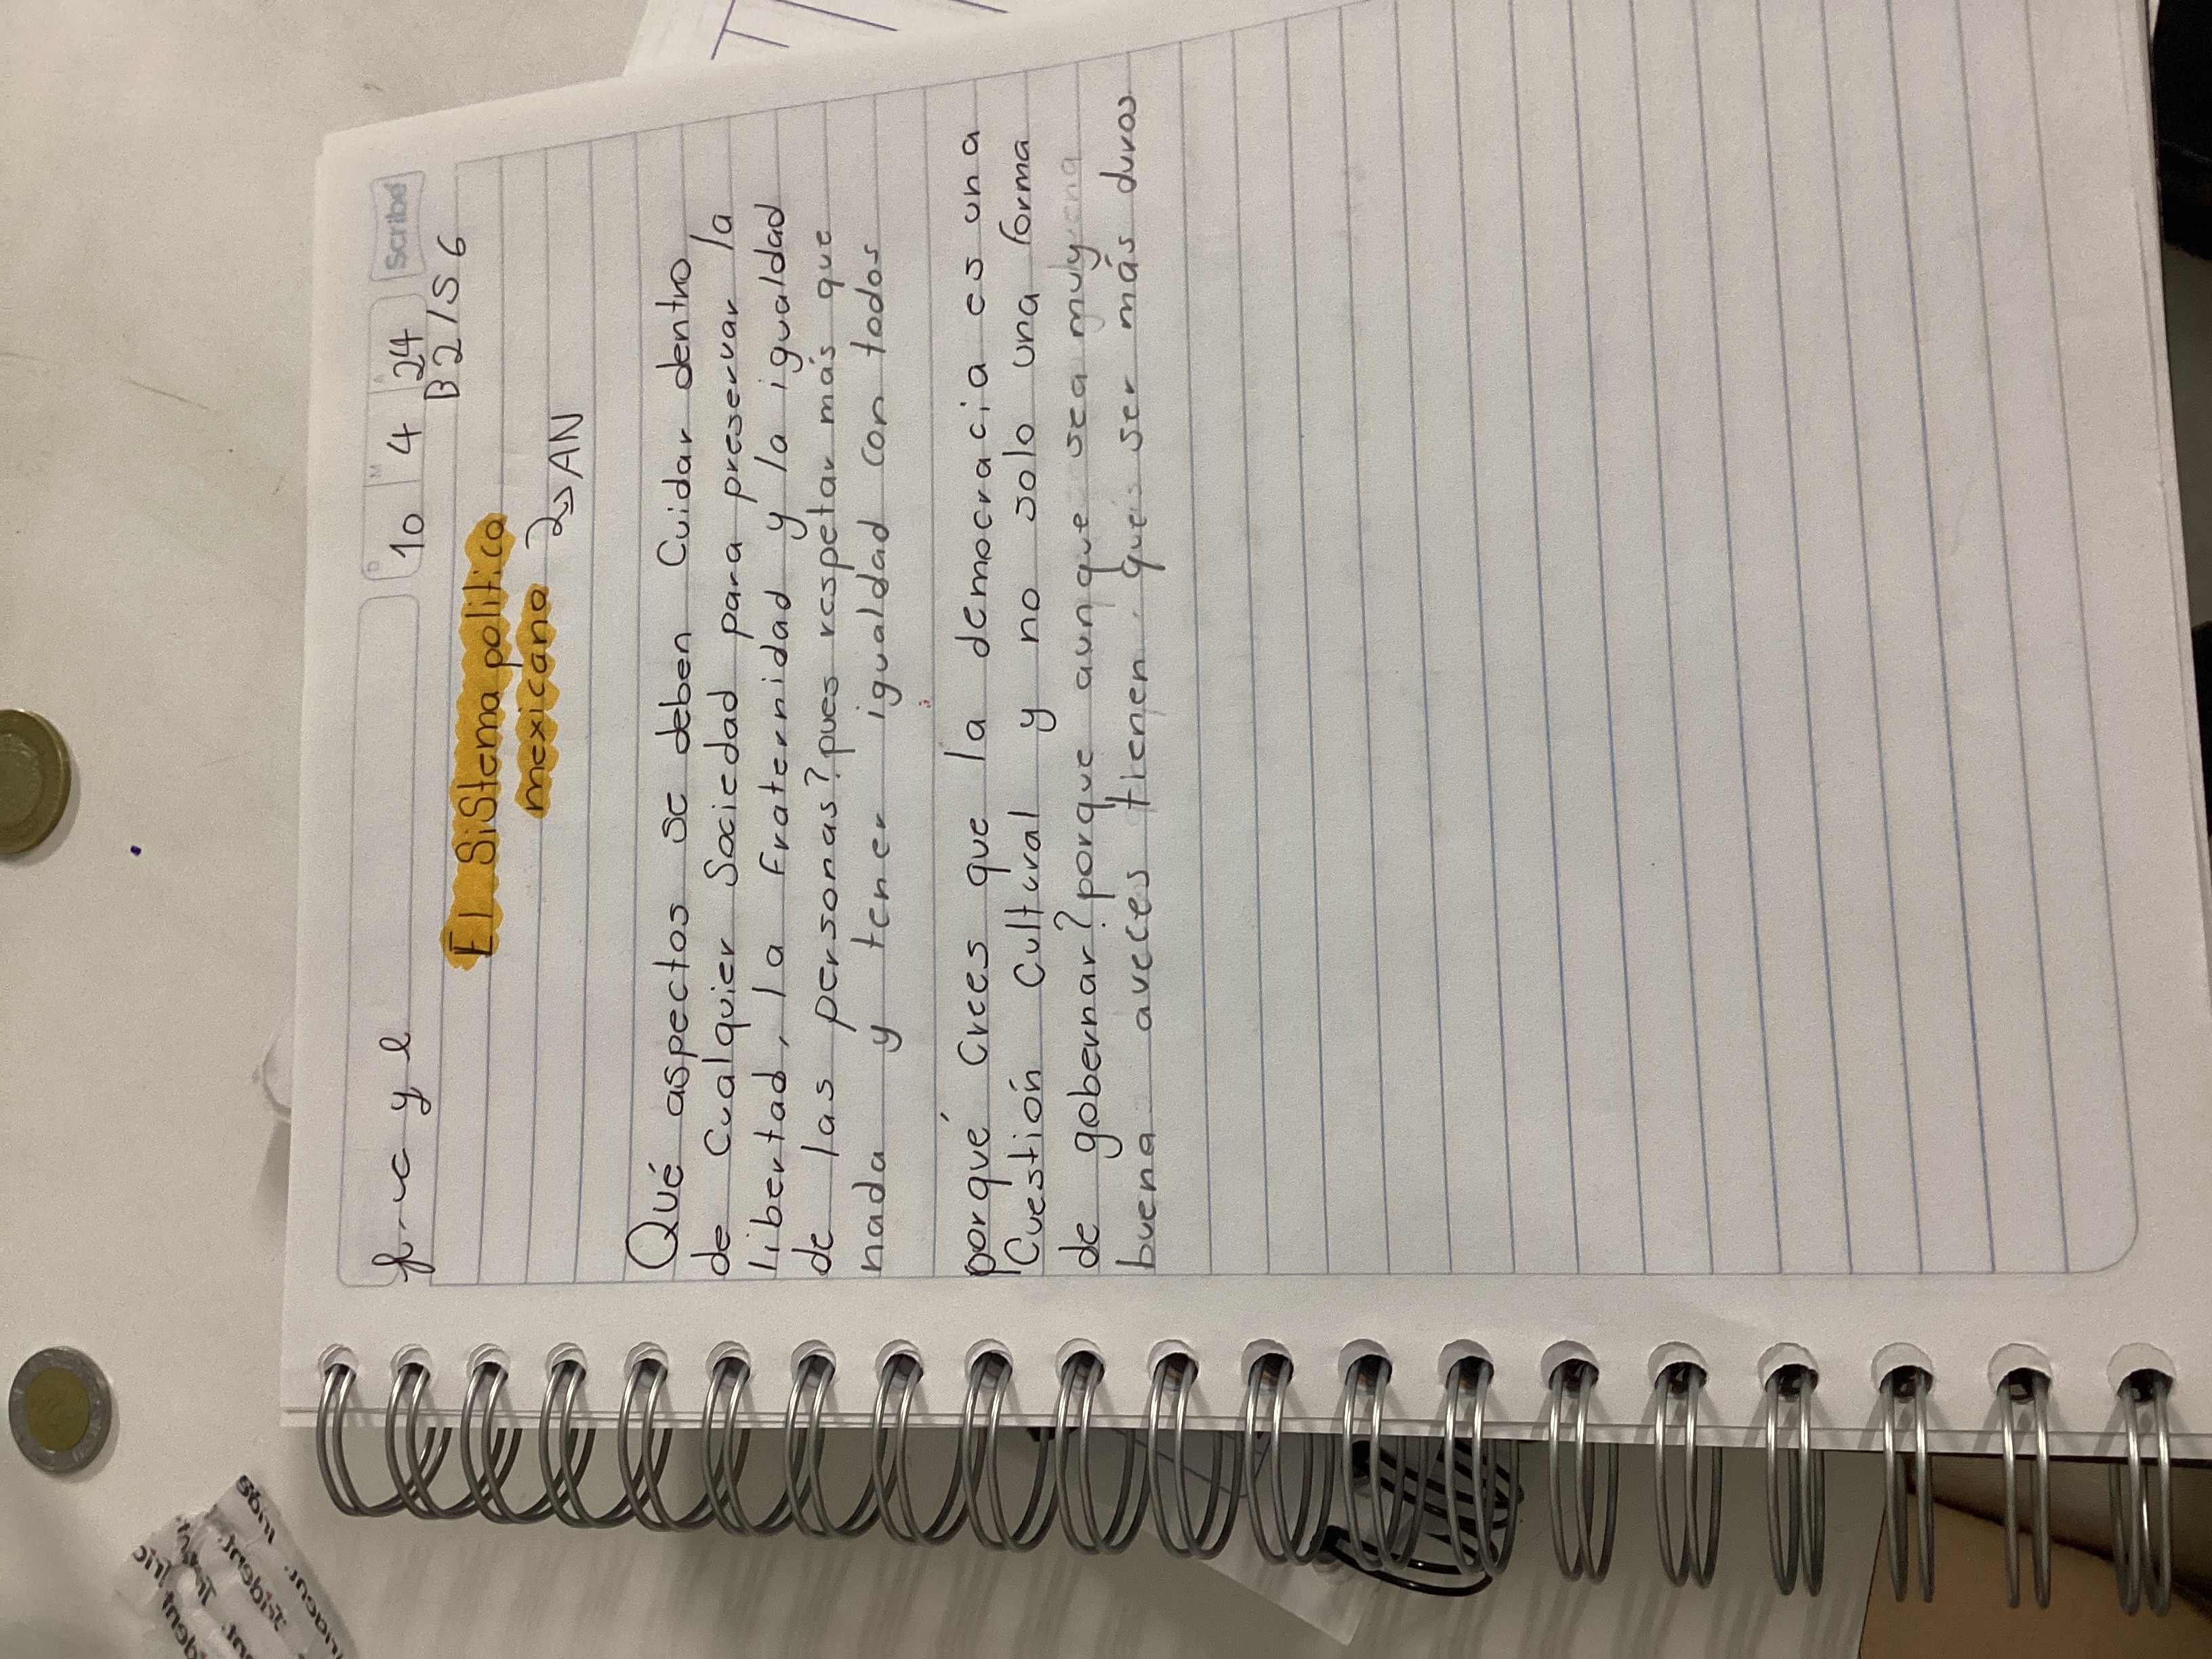 Scribe
D M A
f. c y e 10 4 24
B2/S6
El Sistema politico
mexicano
AN
Qué aspectos se deben Cuidar dentro
de Cualquier Sociedad para preservar la
libertad, la Fraternidad y la igualdad
de las personas? pues respetar más que
nada y tener igualdad con todos
porqué Crees que la democracia es una
Cuestión Cultural y no solo una forma
de gobernar? porque aunque sea muy
buena aveces tienen que ser más duros
Trident.